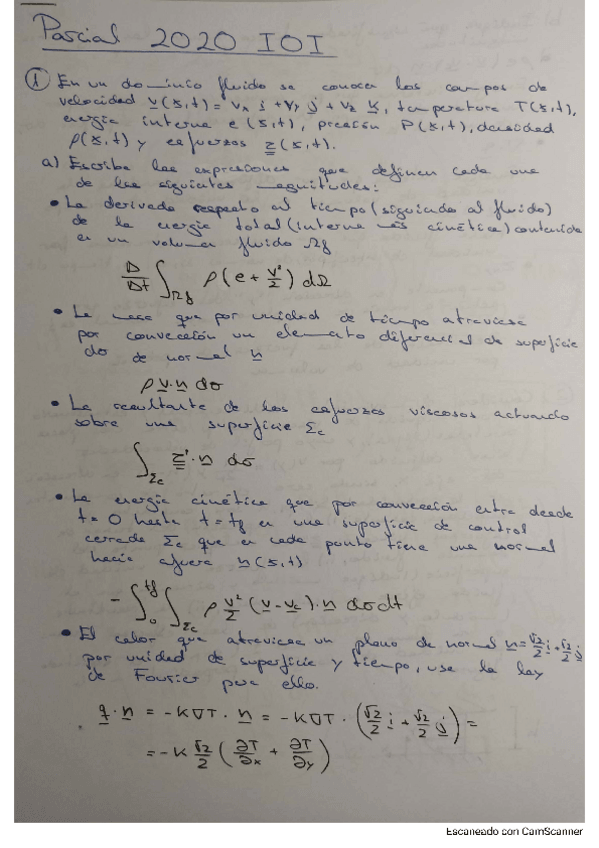 Parcial 2020 IOI
① En un dominio fluido se conocen los campos de
velocidad v(x,t) = vx i + vy j + vz k, temperatura T(x,t),
energía interna e(x,t), presión P(x,t), densidad
ρ(x,t) y esfuerzos τ(x,t).
a) Escriba las expresiones que definen cada una
de las siguientes magnitudes:
• La derivada respecto al tiempo (siguiendo al fluido)
de la energía total (interna más cinética) contenida
en un volumen fluido Ωf
D/Dt ∫Ωf ρ(e + v²/2) dΩ
• La masa que por unidad de tiempo atraviesa
por convección un elemento diferencial de superficie
dσ de normal n
ρ v·n dσ
• La resultante de los esfuerzos viscosos actuando
sobre una superficie Σc
∫Σc τ'·n dσ
• La energía cinética que por convección entra desde
t=0 hasta t=tf en una superficie de control
cerrada Σc que en cada punto tiene una normal
hacia afuera n(x,t)
- ∫₀^tf ∫Σc ρ v²/2 (v - vc)·n dσ dt
• El calor que atraviesa un plano de normal n = √2/2 i + √2/2 j
por unidad de superficie y tiempo, use la ley
de Fourier para ello.
q·n = -K∇T·n = -K∇T·(√2/2 i + √2/2 j) =
= -K √2/2 (∂T/∂x + ∂T/∂y)
Escaneado con CamScanner